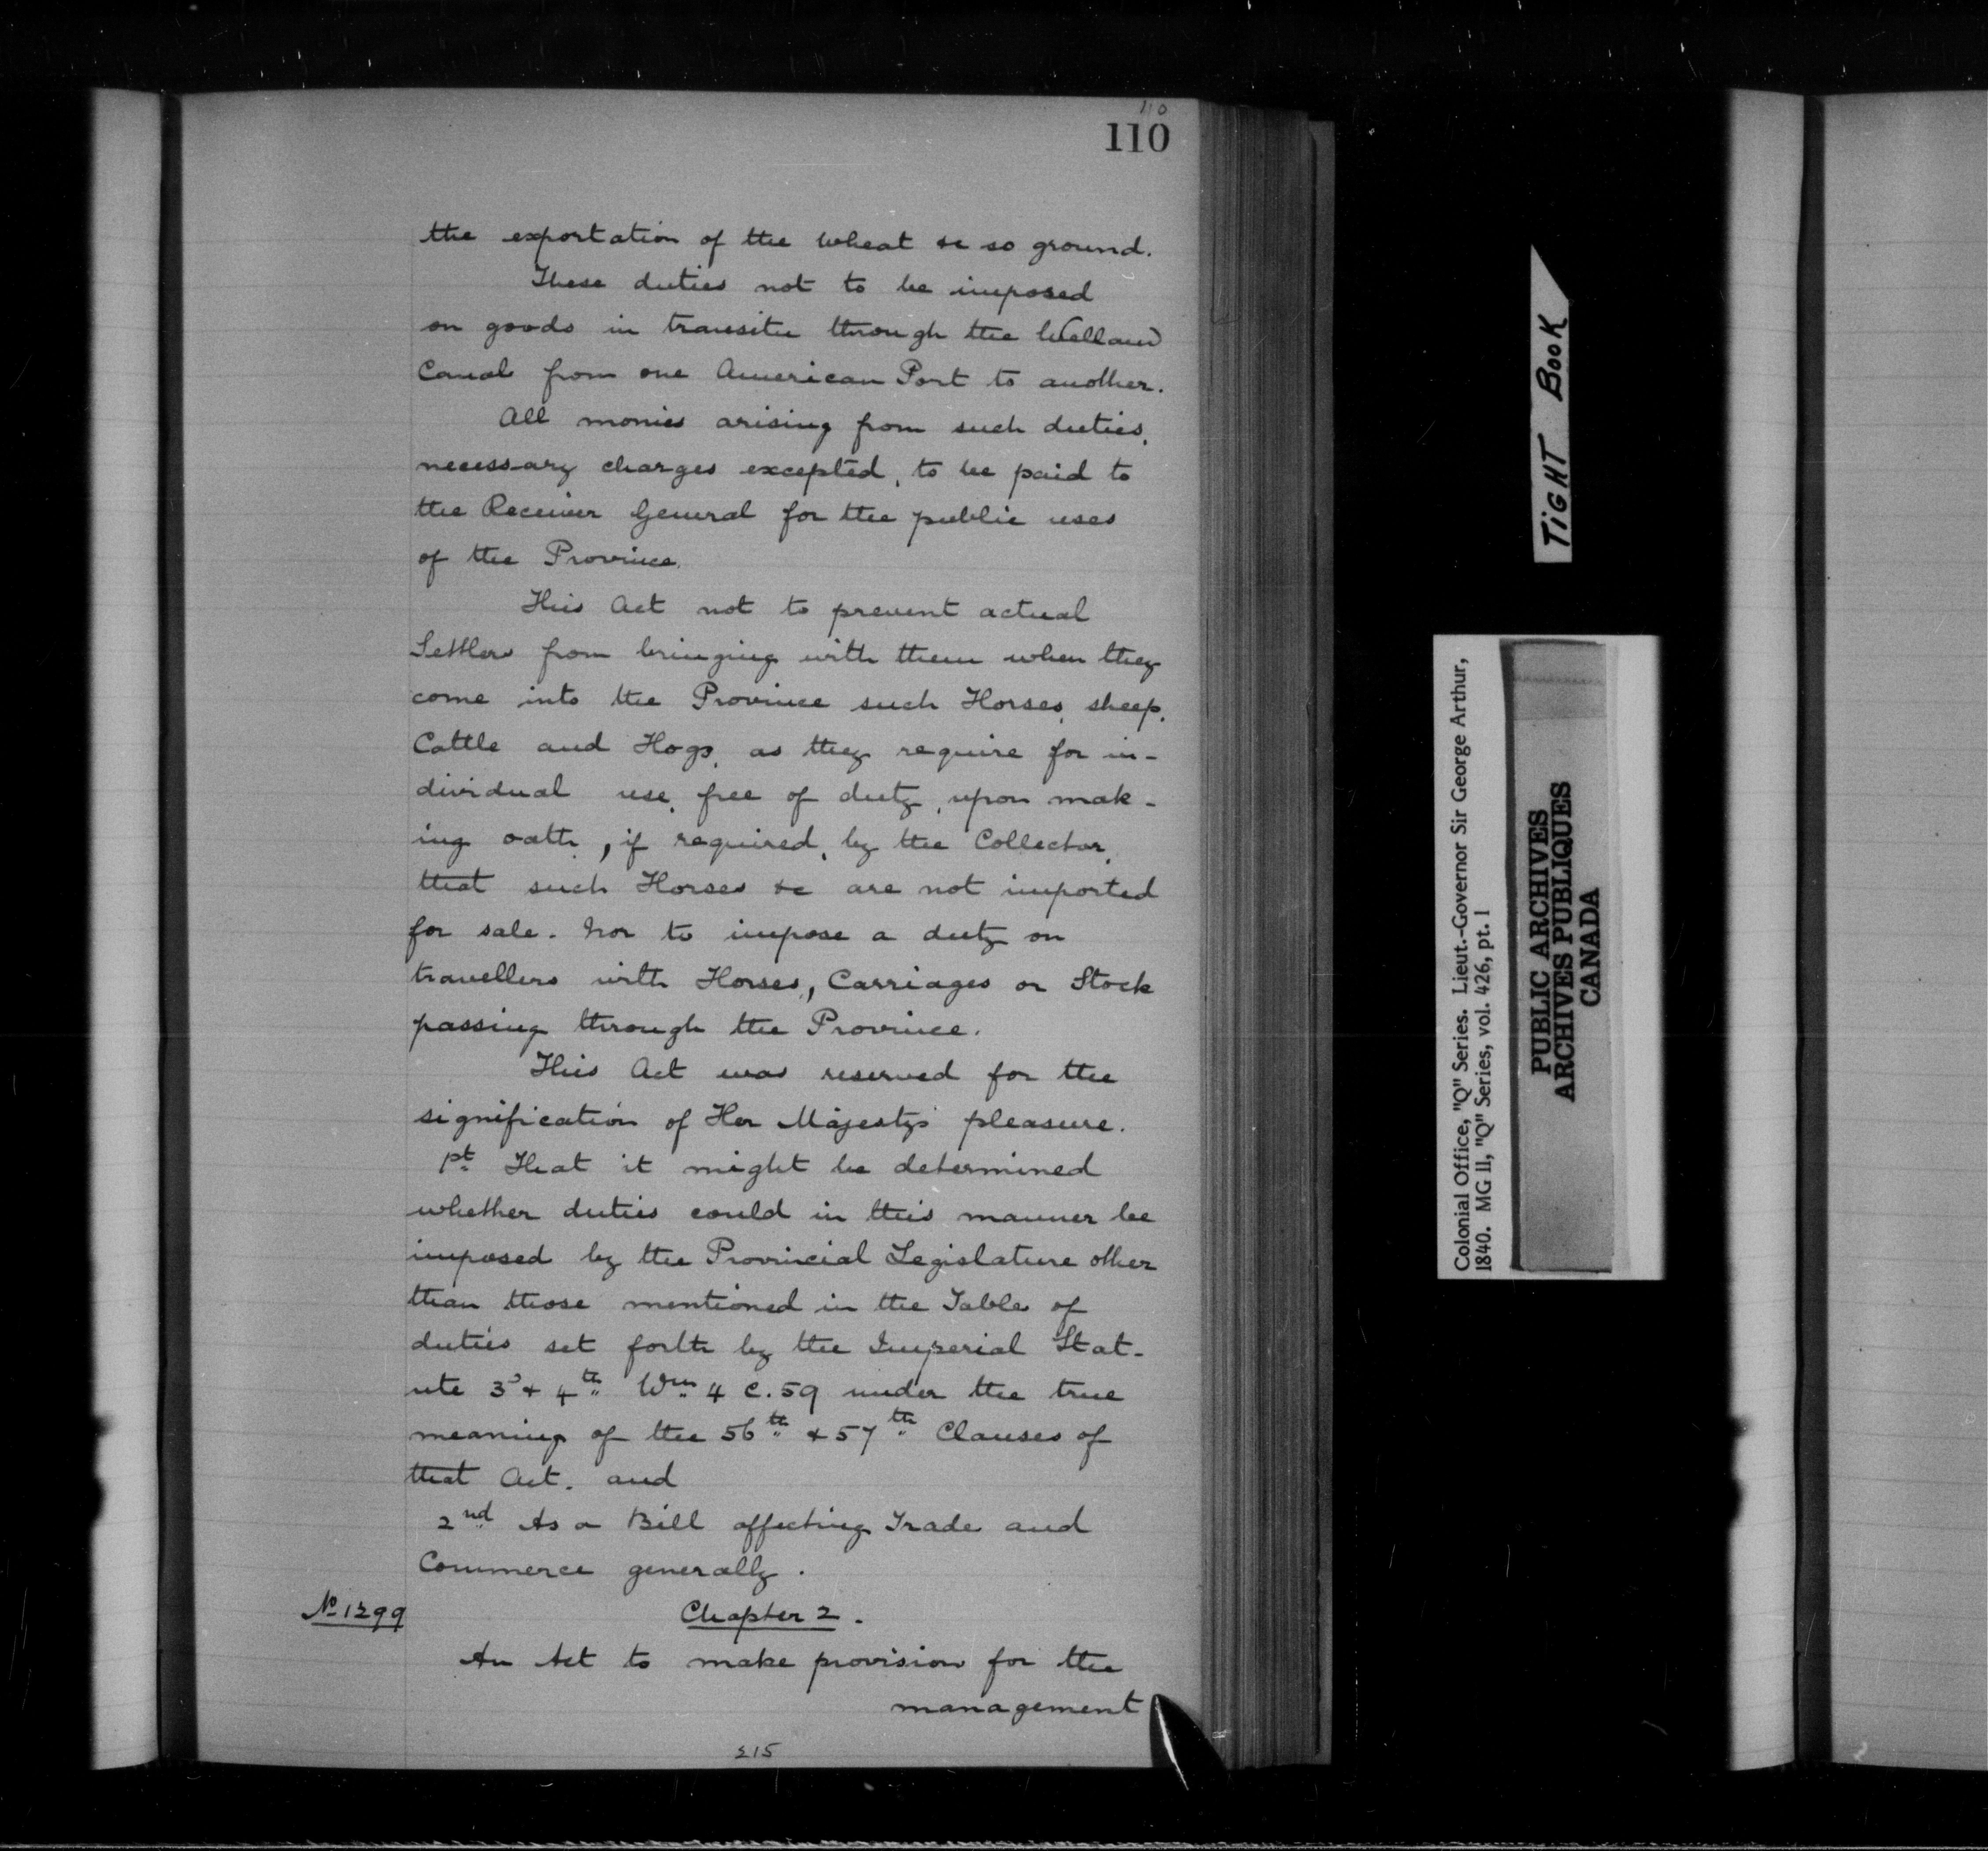 110
110
the exportation of the wheat &c so ground.
These duties not to be imposed
on goods in transitu through the Welland
Canal from one American Port to another.
All monies arising from such duties,
necessary charges excepted, to be paid to
the Receiver General for the public uses
of the Province.
This Act not to prevent actual
Settlers from bringing with them when they
come into the Province such Horses, sheep,
Cattle and Hogs, as they require for in-
dividual use, free of duty, upon mak-
ing oath, if required, by the Collector,
that such Horses &c are not imported
for sale. Nor to impose a duty on
travellers with Horses, Carriages or Stock
passing through the Province.
This Act was reserved for the
signification of Her Majesty's pleasure.
1st That it might be determined
whether duties could in this manner be
imposed by the Provincial Legislature other
than those mentioned in the Table of
duties set forth by the Imperial Stat-
ute 3d & 4th Wm 4 c. 59 under the true
meaning of the 56th & 57th Clauses of
that Act. and
2nd As a Bill affecting Trade and
Commerce generally.
No 1299
Chapter 2.
An Act to make provision for the
management
215
TIGHT BOOK
Colonial Office, "Q" Series. Lieut.-Governor Sir George Arthur,
1840. MG 11, "Q" Series, vol. 426, pt. 1
PUBLIC ARCHIVES
ARCHIVES PUBLIQUES
CANADA